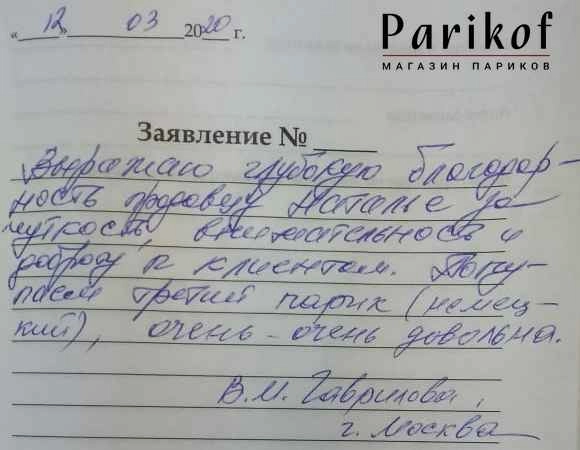 Parikof
МАГАЗИН ПАРИКОВ
«12» 03 2020 г.
Заявление №
Выражаю глубокую благодар-
ность продавцу Наталье за
чуткость, внимательность и
доброту к клиентам. Поку-
паем третий парик (немец-
кий), очень-очень довольна.
В.М. Гаврилова,
г. Москва